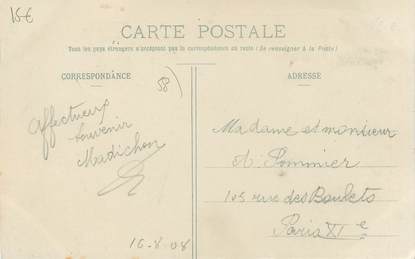 15€
CARTE POSTALE
Tous les pays étrangers n'acceptent pas la correspondance au recto (Se renseigner à la Poste)
CORRESPONDANCE
58)
Affectueux
souvenir
Madichon
16-8-08
ADRESSE
Madame et monsieur
A. Pommier
105 rue des Boulets
Paris XIe